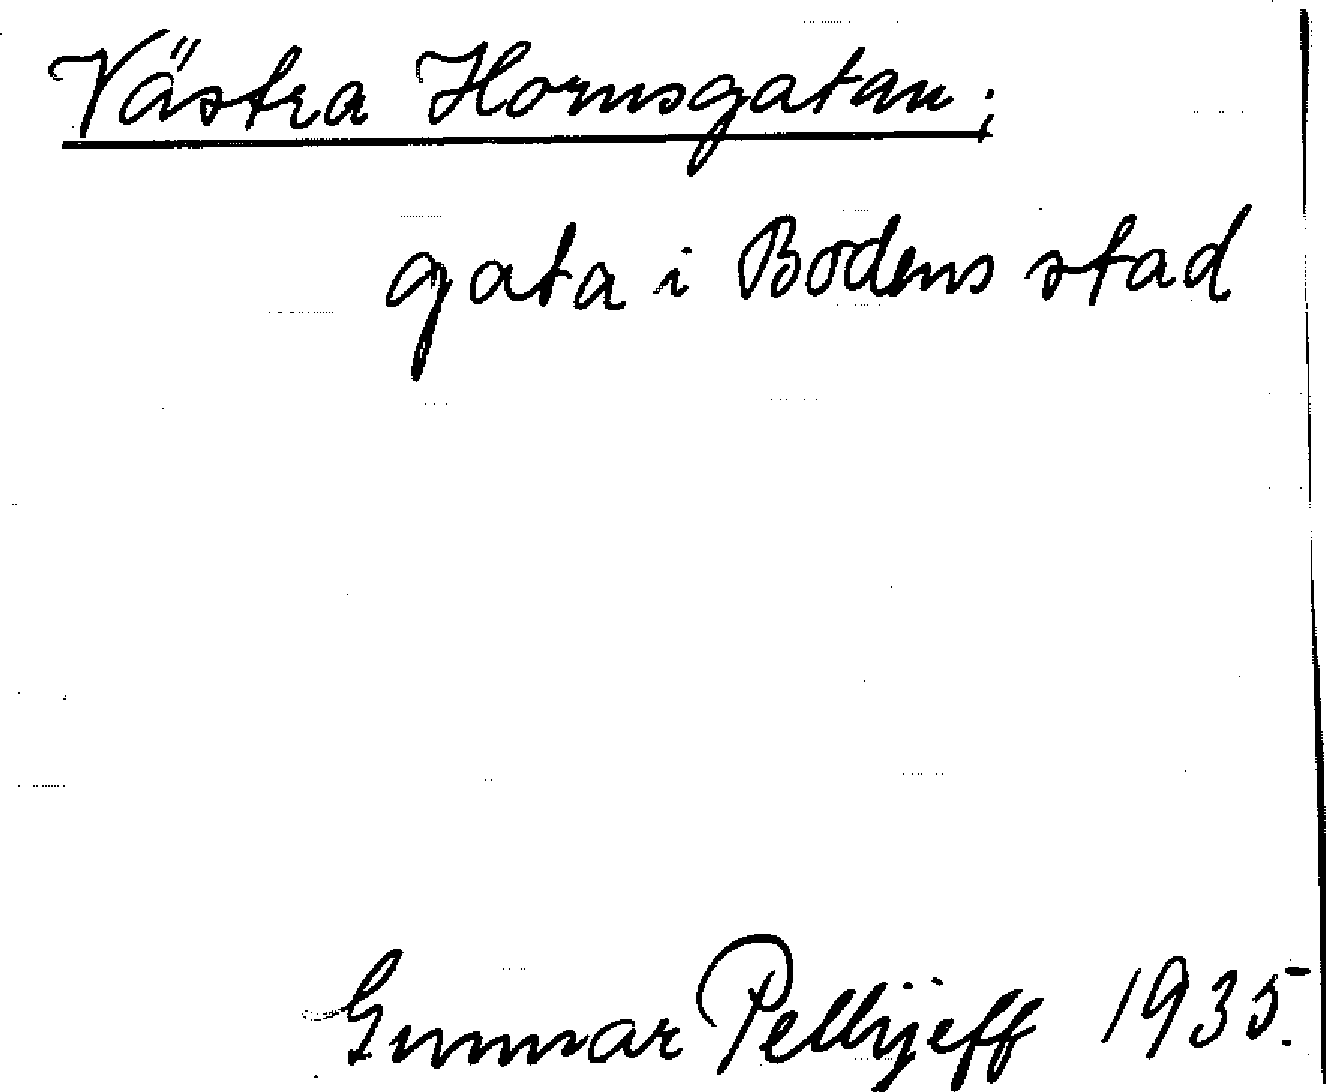 Västra Hornsgatan;
gata i Bodens stad
Gunnar Pellijeff 1935.